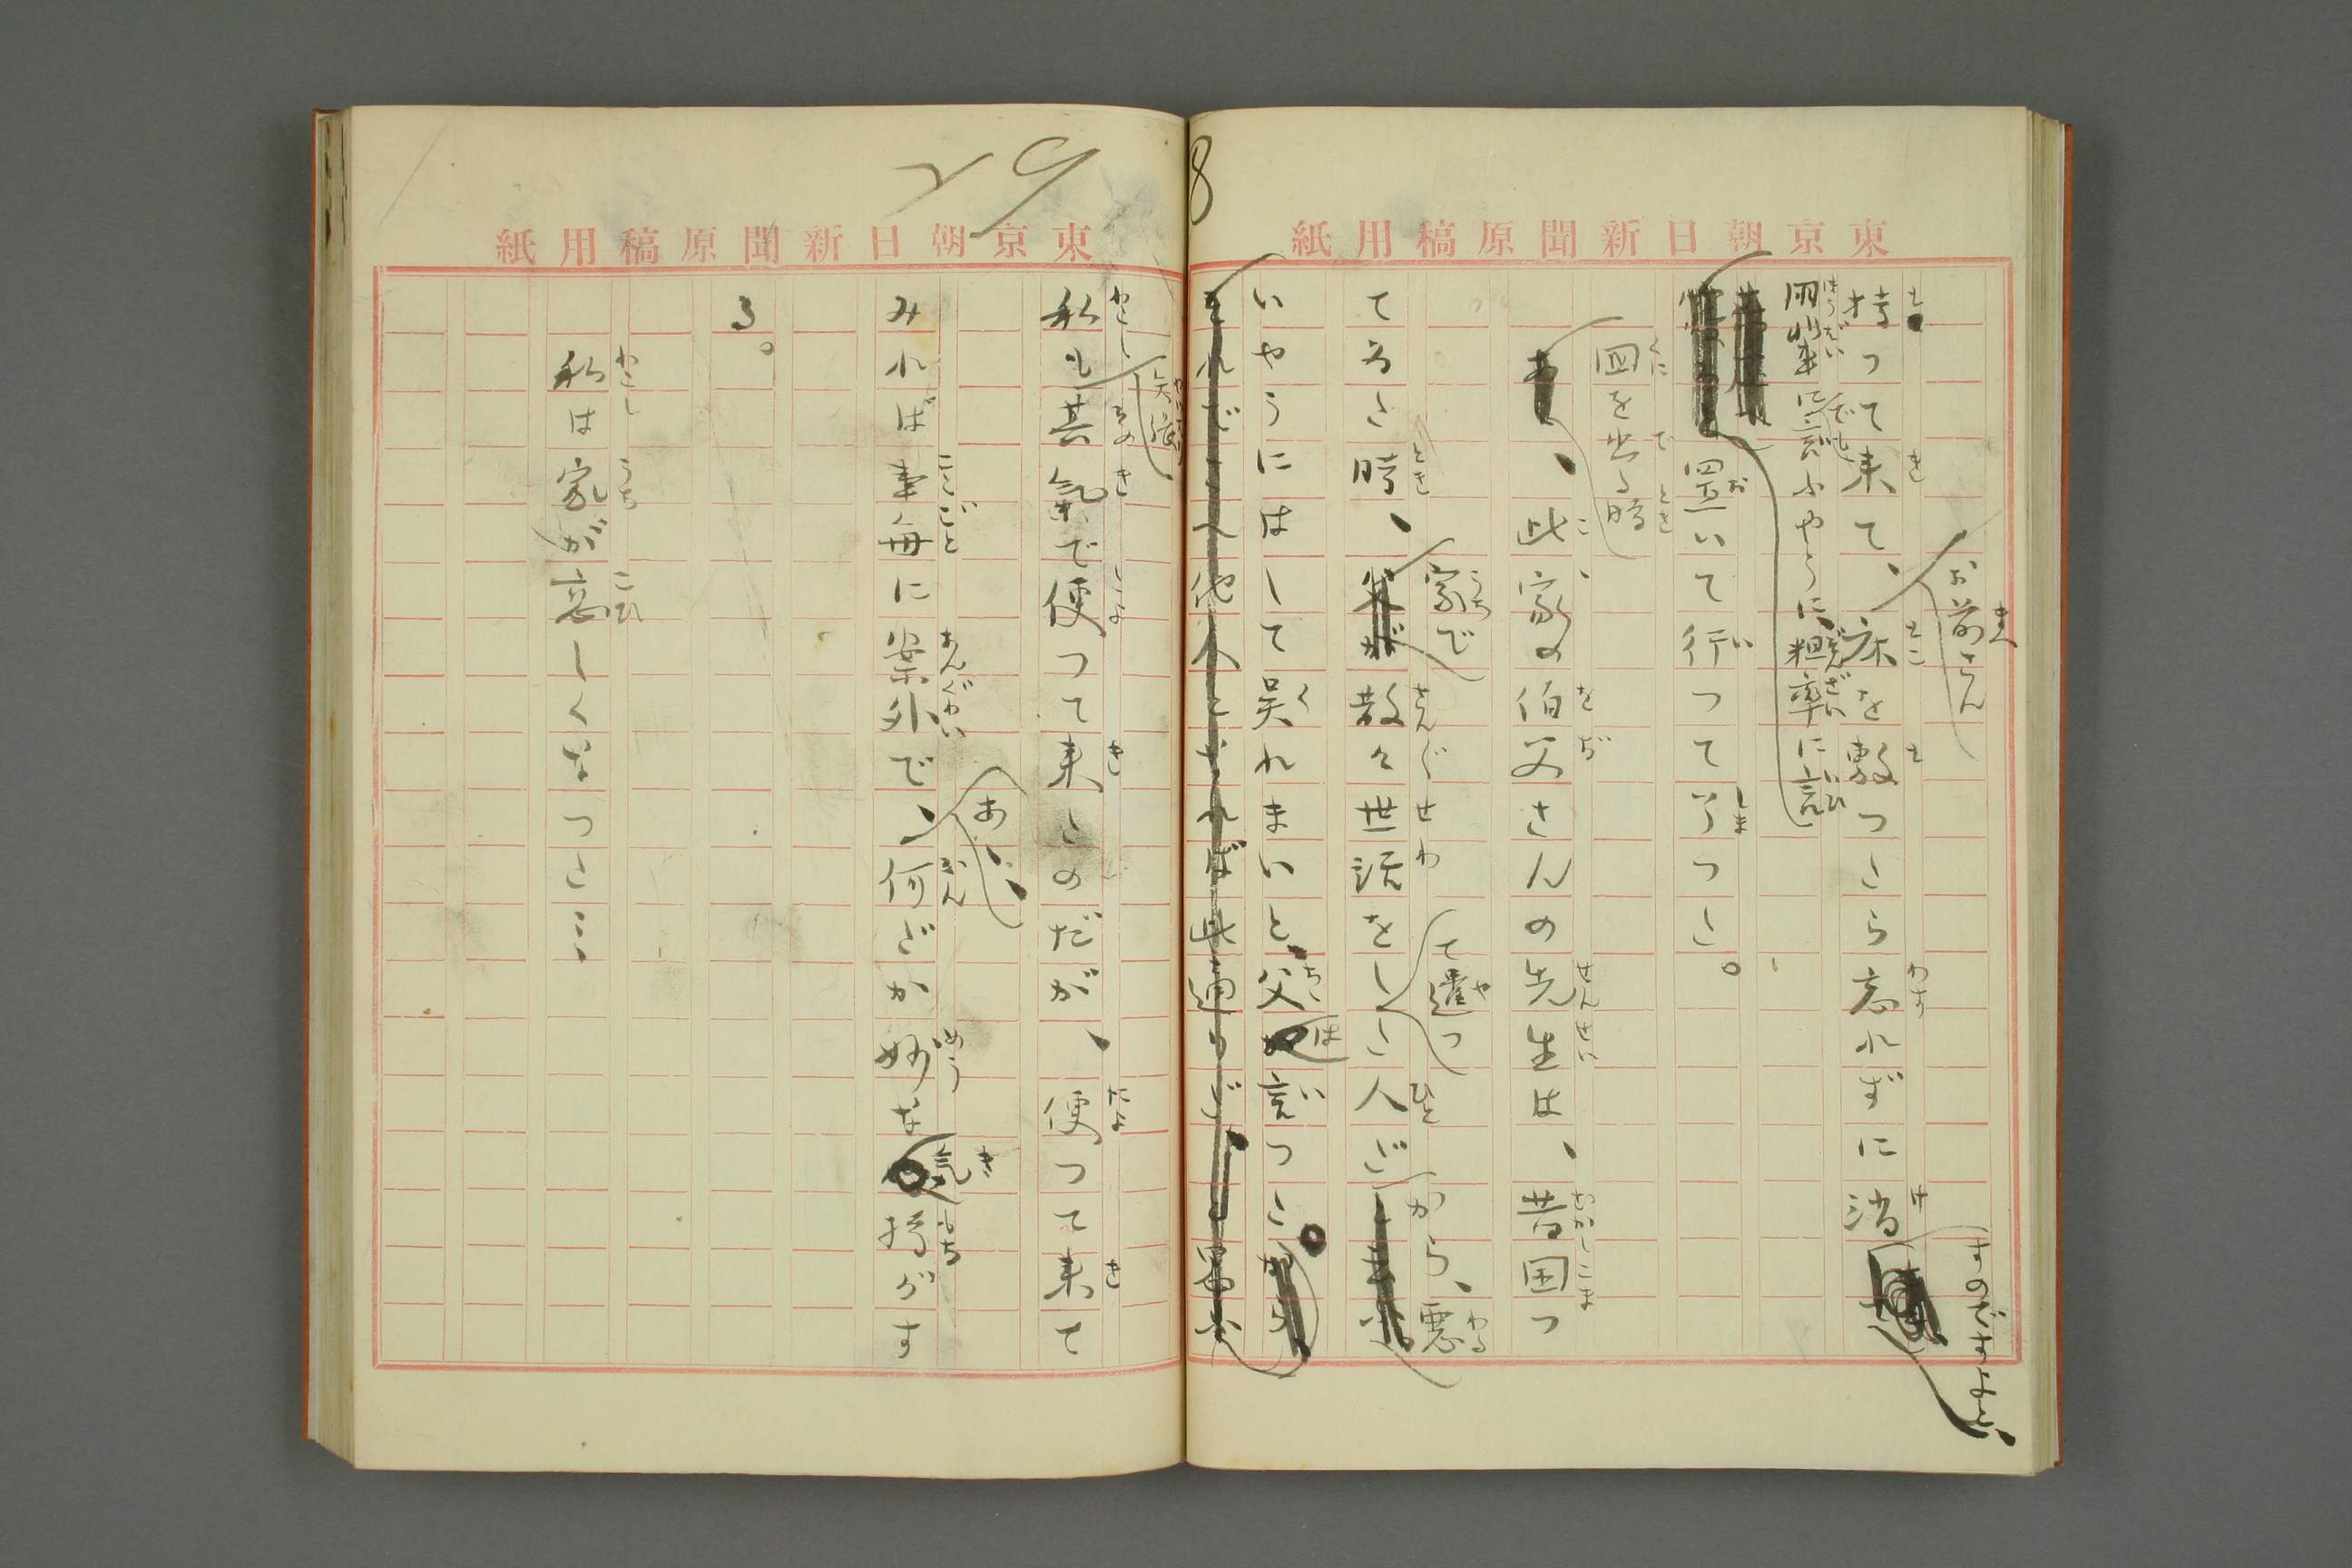 東京朝日新聞原稿用紙
お前さん
持つて来て、床を敷つたら忘れずに消すのだすよと、
朋輩にでも言ふやうに、粗率に言
置いて行つて了つた。
国を出る時、此家の伯父さんの先生は、昔困つ
てゐた時、家で散々世話をして遣つた人だから、悪
いやうにはして呉れまいと、父は言つた。
それでさへ他人となれば此通りだ、
29
東京朝日新聞原稿用紙
矢張
私も其気で便つて来たのだが、便つて来て
みれば事毎に案外で、ああ、何だか妙な気持がす
る。
私は家が恋しくなつた…